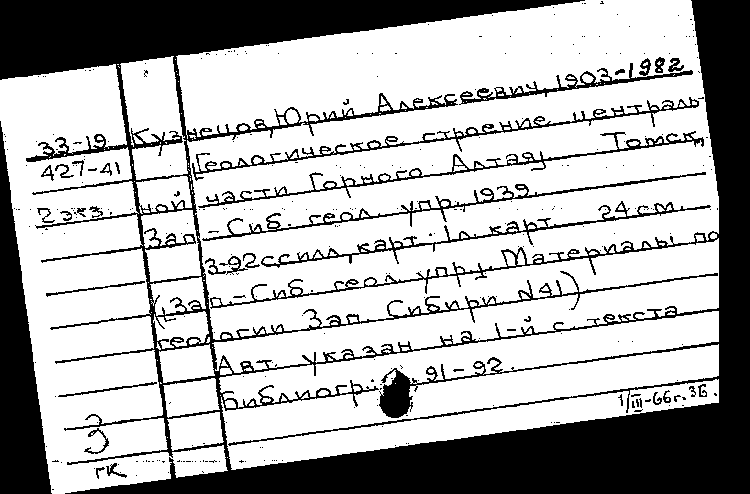 33-19 Кузнецов, Юрий Алексеевич, 1903-1982
427-41 Геологическое строение централь-
2 экз. ной части Горного Алтая. Томск,
Зап.-Сиб. геол. упр., 1939.
3-92 с. с илл., карт.; 1 л. карт. 24 см.
(Зап.-Сиб. геол. упр. Материалы по
геологии Зап. Сибири №41)
Авт. указан на 1-й с. текста
Библиогр.: с. 91-92.
1/III-66г. ЗБ.
3
ГК